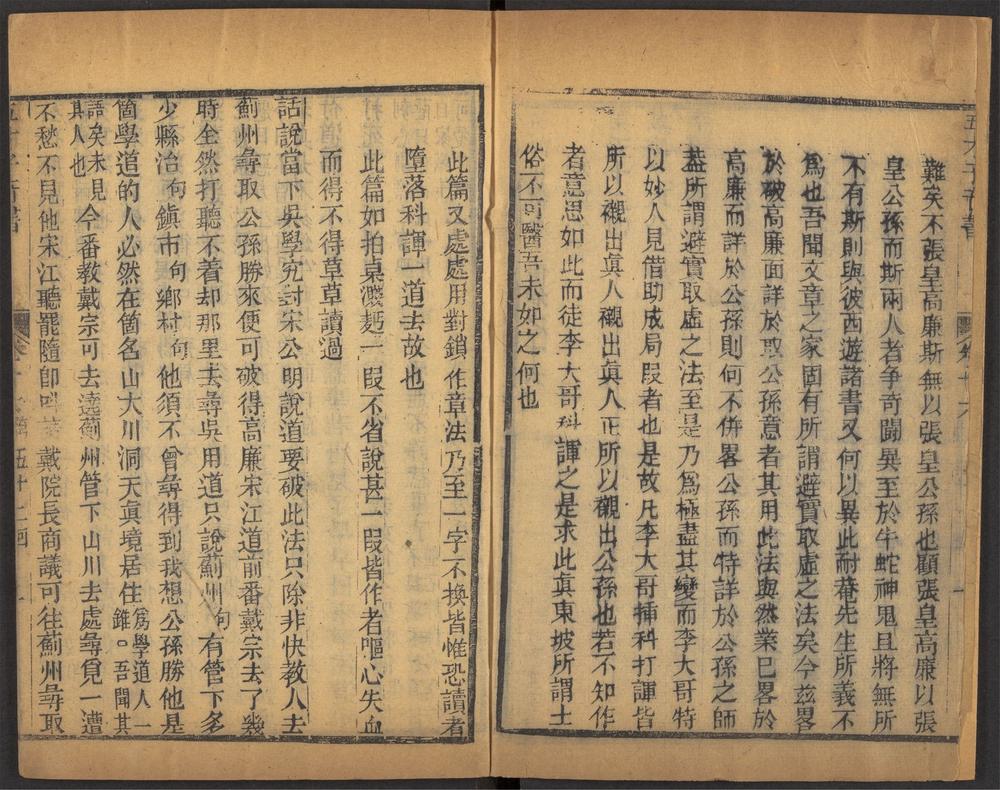 難矣不張皇高廉斯無以張皇公孫也顧張皇高廉以張
皇公孫而斯兩人者爭奇鬬異至於牛蛇神鬼且將無所
不有斯則與彼西遊諸書又何以異此耐菴先生所義不
爲也吾聞文章之家固有所謂避實取虛之法矣今茲畧
於破高廉而詳於取公孫意者其用此法與然業已畧於
高廉而詳於公孫則何不併畧公孫而特詳於公孫之師
葢所謂避實取虛之法至是乃爲極盡其變而李大哥特
以妙人見借助成局叚者也是故凡李大哥揷科打諢皆
所以襯出眞人襯出眞人正所以襯出公孫也若不知作
者意思如此而徒李大哥科諢之是求此眞東坡所謂士
俗不可醫吾未如之何也
此篇又處處用對鎖作章法乃至一字不換皆惟恐讀者
墮落科諢一道去故也
此篇如拍桌濺麪一叚不省說甚一叚皆作者嘔心失血
而得不得草草讀過
話說當下吳學究對宋公明說道要破此法只除非快教人去
薊州尋取公孫勝來便可破得高廉宋江道前番戴宗去了幾
時全然打聽不着却那里去尋吳用道只說薊州句有管下多
少縣治句鎭市句鄉村句他須不曾尋得到我想公孫勝他是
箇學道的人必然在箇名山大川洞天眞境居住爲學道人一錐。吾聞其
語矣未見其人也今番教戴宗可去遶薊州管下山川去處尋覔一遭
不愁不見他宋江聽罷隨卽叫請戴院長商議可往薊州尋取
五十二回 一